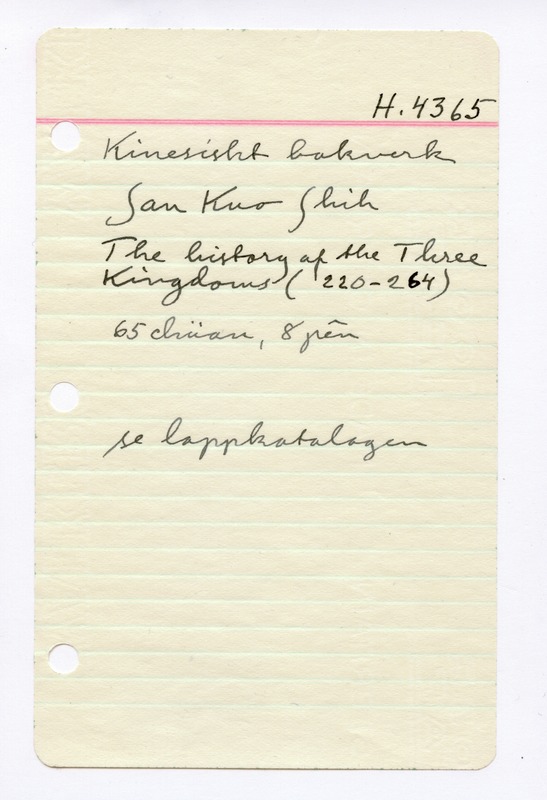 H.4365
Kinesiskt bokverk
San Kuo Shih
The history of the Three
Kingdoms (220-264)
65 chüan, 8 pên
se lappkatalogen